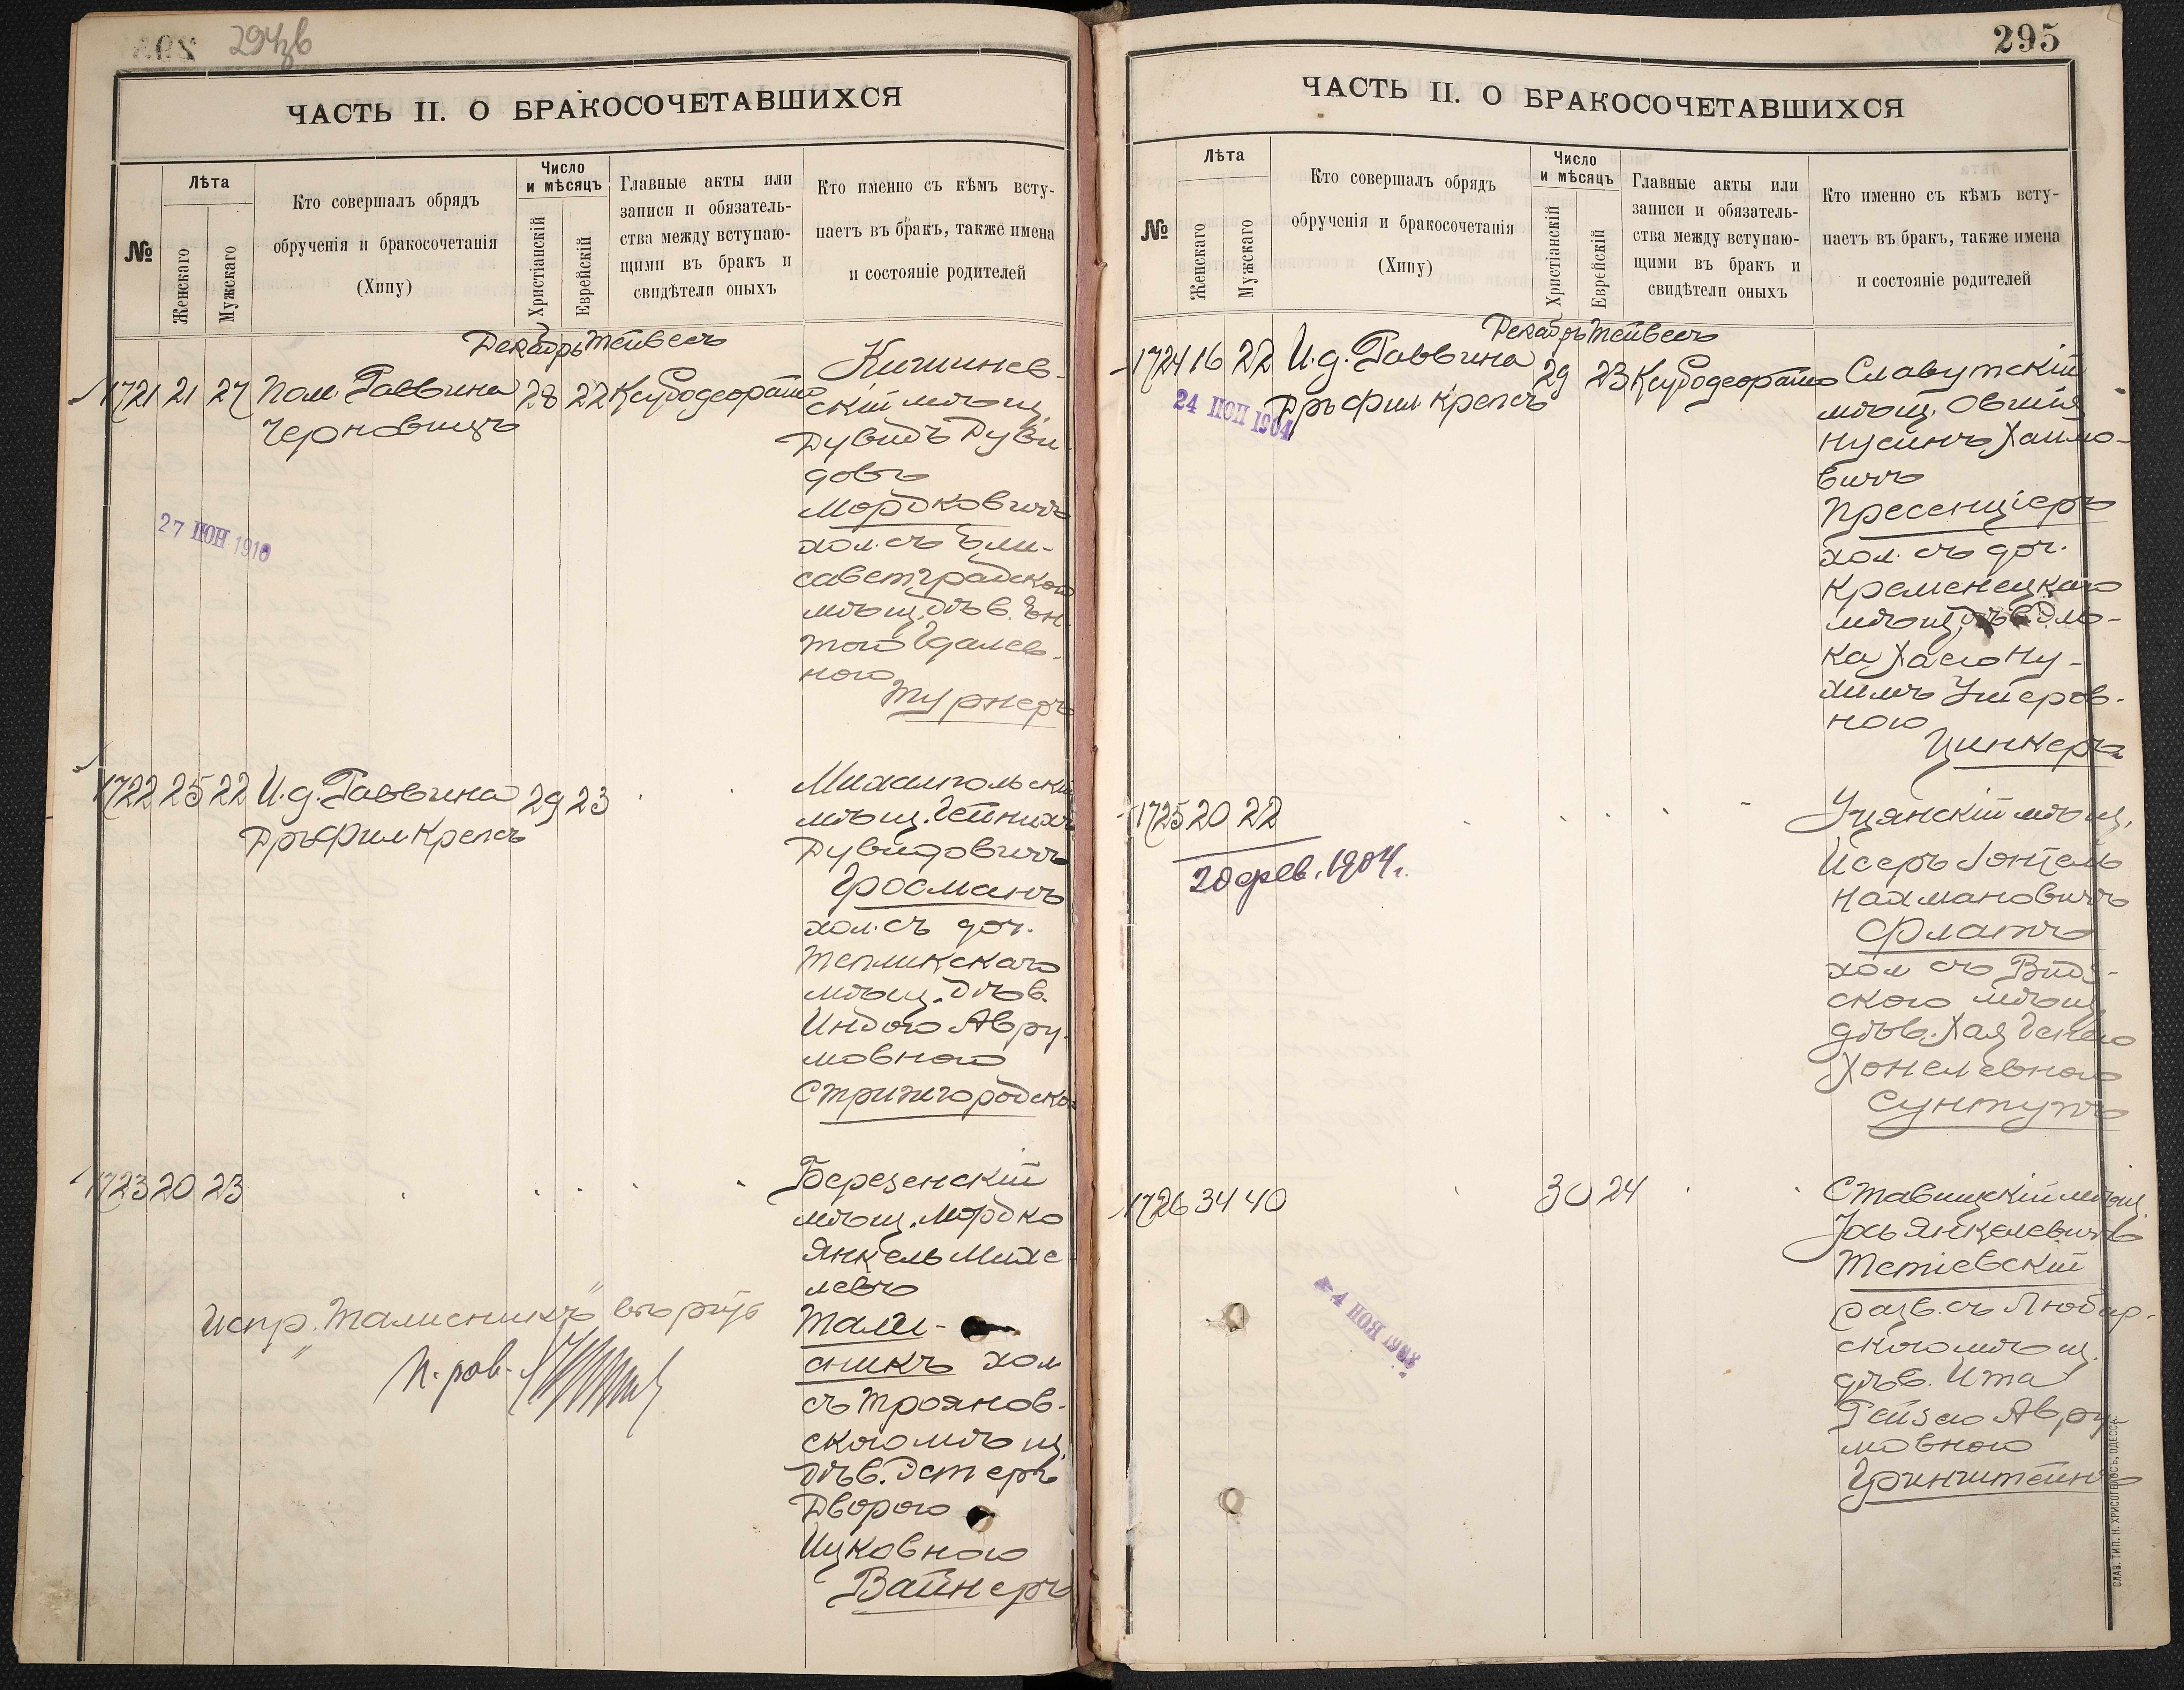 294об
ЧАСТЬ II. О БРАКОСОЧЕТАВШИХСЯ
№
Лѣта
Женскаго
Мужскаго
Кто совершалъ обрядъ
обрученія и бракосочетанія
(Хипу)
Число
и мѣсяцъ
Христіанскій
Еврейскій
Главные акты или
записи и обязатель-
ства между вступаю-
щими въ бракъ и
свидѣтели оныхъ
Кто именно съ кѣмъ всту-
паетъ въ бракъ, также имена
и состояніе родителей
Декабрь Тейвесъ
1721 21 27 Пом. Раввина 28 22
Черновицъ
Кишинев-
скій мѣщ.
Дувидъ Дуви-
довъ
Мордковичъ
хол. съ Ели-
саветградской
мѣщ. дѣв. Ен-
тою Гдалев-
ною
Турнеръ
27 ИЮН 1910
1722 25 22 И.д. Раввина 29 23
Дръ Фил Крепсъ
Михалпольскій
мѣщ. Гейнихъ
Дувидовичъ
Гросманъ
хол. съ доч.
Тепликскаго
мѣщ. дѣв.
Индою Авру-
мовною
Стрижгородско
1723 20 23
Березенскій
мѣщ. Мордко
Янкель Михе-
левъ
Тали-
сникъ хол
съ Троянов-
скою мѣщ.
дѣв. Эстеръ
Дворою
Ицковною
Вайнеръ
Испр. "Талисникъ"
П. рав.
295
ЧАСТЬ II. О БРАКОСОЧЕТАВШИХСЯ
№
Лѣта
Женскаго
Мужскаго
Кто совершалъ обрядъ
обрученія и бракосочетанія
(Хипу)
Число
и мѣсяцъ
Христіанскій
Еврейскій
Главные акты или
записи и обязатель-
ства между вступаю-
щими въ бракъ и
свидѣтели оныхъ
Кто именно съ кѣмъ всту-
паетъ въ бракъ, также имена
и состояніе родителей
Декабрь Тейвесъ
1724 16 22 И.д. Раввина 29 23
Дръ Фил Крепсъ
24 1904
Славутскій
мѣщ. Овшія
Нусинъ Хаимо-
вичъ
Пресенціеръ
хол. съ доч.
Кременецкаго
мѣщ. дѣв.
Хасю Ну-
химъ Ушеров-
ною
Цинкеръ
1725 20 22
20 фев. 1904 г.
Уцянскій мѣщ.
Исеръ Іонтель
Нахмановичъ
Флатъ
хол съ Вид-
скою мѣщ
дѣв. Хая Генею
Хонелевною
Сунтупъ
1726 34 40 30 24
Ставищкій мѣщ.
Іось Янкелевичъ
Тетіевскій
разв. съ Любар-
скою мѣщ.
дѣв. Ита
Рейзею Авру-
мовною
Гринштейнъ
СЛАВ. ТИП. Н. ХРИСОГЕЛОСЪ, ОДЕССА